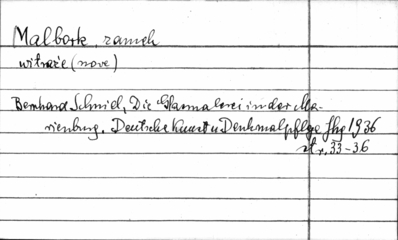 Malbork, zamek
witraże (nowe)
Bernhard Schmid, Die Glasmalerei in der Ma-
rienburg. Deutsche Kunst u Denkmalpflege Jhg 1936
str. 33-36